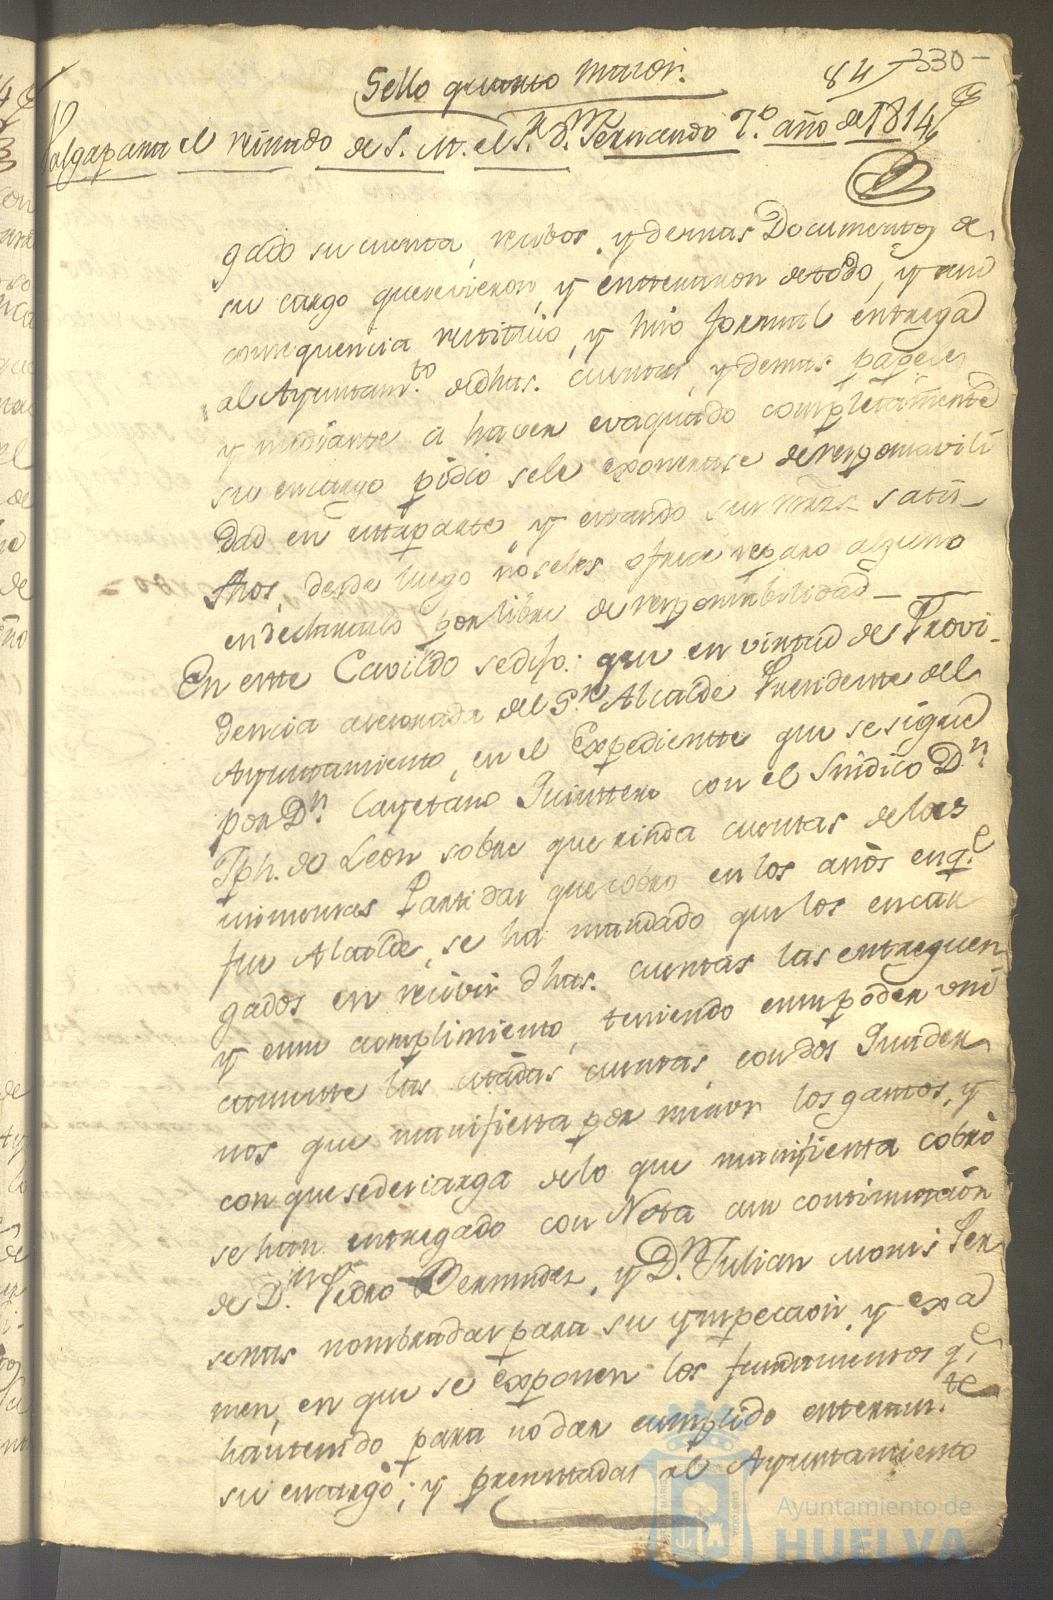 84 330-
Sello quarto maior.
Valga para el reinado de S. M. el Sr. Dn. Fernando 7.º año de 1814
gado su cuenta, recibos, y demas Documentos de
su cargo que vieron, y enteraron de todo, y en
consequencia restituio, y hizo formal entrega
al Ayuntamto. de dhas. cuentas, y demas papeles
y mediante a haver evaquado completamente
su encargo pidio se le exonerase de responsavili
dad en esta parte, y estando sus mrzs. satis-
fhos, desde luego no se les ofrece reparo alguno
en declararlo por libre de responsabilidad
En este Cavildo se dijo: que en virtud de Provi-
dencia asesorada del Sr. Alcalde Presidente del
Ayuntamiento, en el Expediente que se sigue
por Dn. Cayetano Quintero con el Sindico Dn.
Jph. de Leon sobre que rinda cuentas de las
inmensas Partidas que cobro en los años en q.e
fue Alcalde, se ha mandado que los encar
gados en recivir dhas. cuentas las entreguen
y en su cumplimiento, teniendo en su poder uni
camente las citadas cuentas con dos Quader
nos que manifiesta por menor los gastos, y
con que se descarga de lo que manifiesta cobró
se han entregado con Nota a su continuacion
de Dn. Pedro Bermudez, y Dn. Julian Mons Per
sonas nombradas para su ynspeccion, y exa
men, en que se exponen los fundamentos q.e
han tenido para no dar cumplido enteram.te
su encargo; y presentadas al Ayuntamiento
Ayuntamiento de
HUELVA